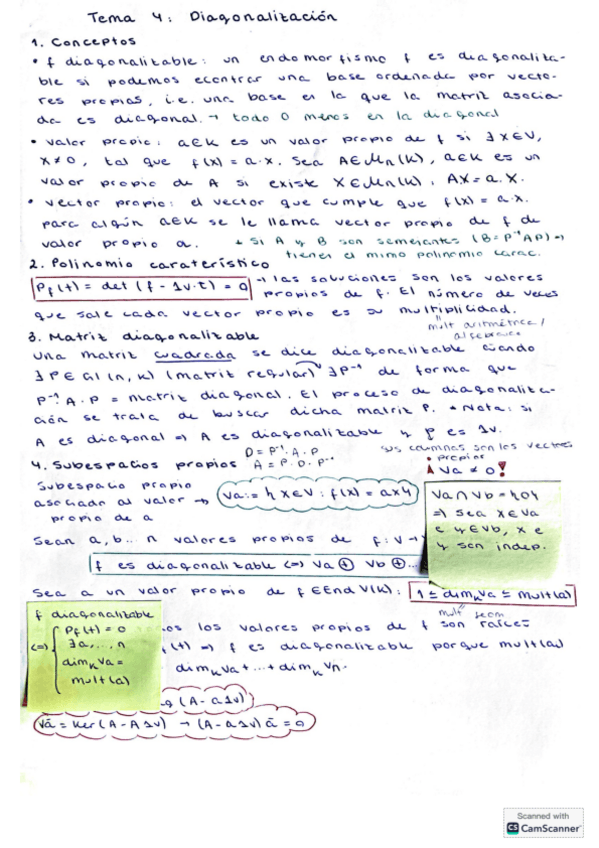 Tema 4: Diagonalización
1. Conceptos
• f diagonalizable: un endomorfismo f es diagonaliza-
ble si podemos econtrar una base ordenada por vecto-
res propios, i.e. una base en la que la matriz asocia-
da es diagonal. → todo 0 menos en la diagonal
• valor propio: a∈K es un valor propio de f si ∃x∈V,
x≠0, tal que f(x) = a·x. Sea A∈Mn(K), a∈K es un
valor propio de A si existe X∈Mn(K): AX=a.X.
• vector propio: el vector que cumple que f(x) = a·x.
para algún a∈K se le llama vector propio de f de
valor propio a. * Si A y B son semejantes (B=P⁻¹AP) →
tienen el mimo polinomio carac.
2. Polinomio caraterístico
Pf(t) = det (f - 1v.t) = 0 → las soluciones son los valores
propios de f. El número de veces
que sale cada vector propio es su multiplicidad.
mult aritmétrica/
algebraica
3. Matriz diagonalizable
Una matriz cuadrada se dice diagonalizable cuando
∃P∈Gl(n,K) (matriz regular) ∃P⁻¹ de forma que
P⁻¹.A.P = matriz diagonal. El proceso de diagonaliza-
ción se trata de buscar dicha matriz P. * Nota: si
A es diagonal ⇒ A es diagonalizable y P es 1v.
D = P⁻¹.A.P
sus columnas son los vectores
propios
4. Subespacios propios A = P.D.P⁻¹
Va ≠ 0!
Subespacio propio
asociado al valor →
propio de a
Va:= {x∈V: f(x) = ax}
Va∩Vb={0}
⇒ Sea x∈Va
e y∈Vb, x e
y son indep.
Sean a, b... n valores propios de f: V→
f es diagonalizable ⇔ Va ⊕ Vb ⊕...
Sea a un valor propio de f∈End V(K): 1 ≤ dimₖVa ≤ mult(a)
mult geom
f diagonalizable
⇔ Pf(t) = 0
∃a,...,n
dimₖVa =
mult(a)
los valores propios de f son raíces
(t) ⇒ f es diagonalizable porque mult(a)
dimₖVa+...+dimₖVn.
(A-a1v)
Vā = Ker(A-A1v) → (A-a1v)ā = 0
Scanned with
CS CamScanner